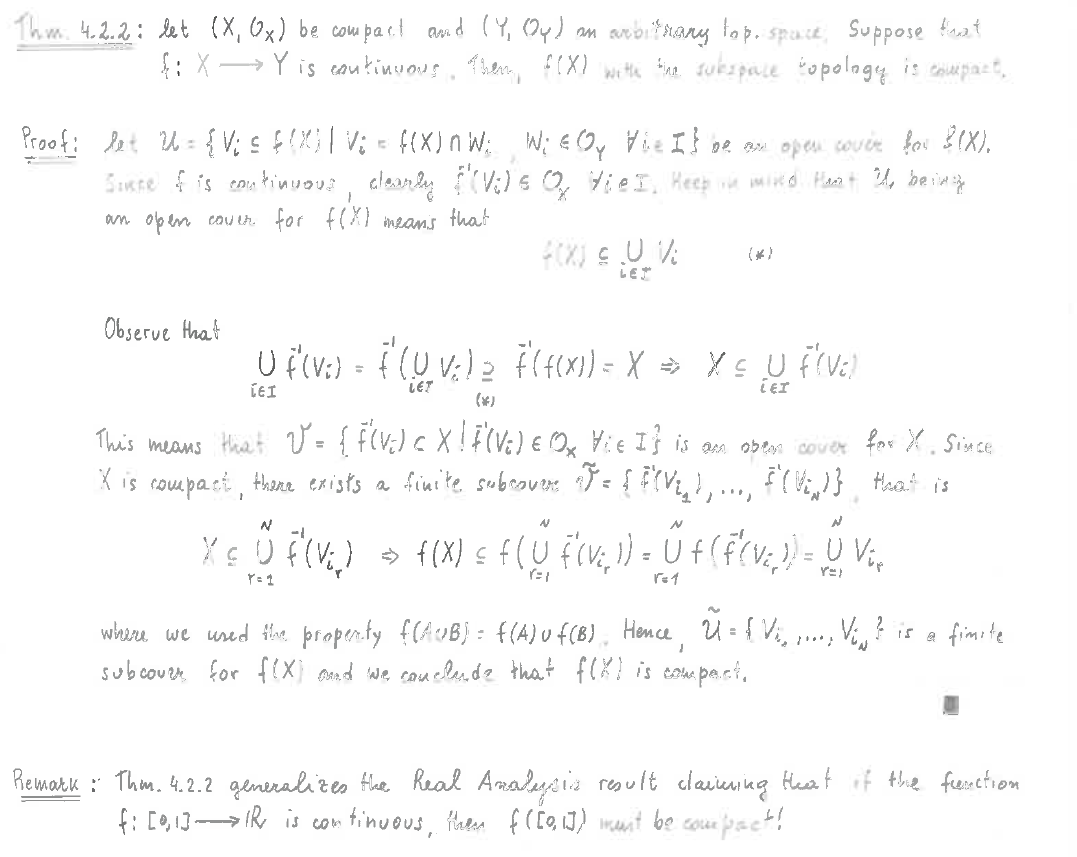 Thm. 4.2.2: let (X, O_X) be compact and (Y, O_Y) an arbitrary top. space. Suppose that
f: X ⟶ Y is continuous. Then, f(X) with the subspace topology is compact.
Proof: let 𝒰 = { V_i ⊆ f(X) | V_i = f(X) ∩ W_i, W_i ∈ O_Y ∀i∈I } be an open cover for f(X).
Since f is continuous, clearly f⁻¹(V_i) ∈ O_X ∀i∈I. Keep in mind that 𝒰 being
an open cover for f(X) means that
f(X) ⊆ ⋃_{i∈I} V_i (*)
Observe that
⋃_{i∈I} f⁻¹(V_i) = f⁻¹(⋃_{i∈I} V_i) ⊇_{(*)} f⁻¹(f(X)) = X ⇒ X ⊆ ⋃_{i∈I} f⁻¹(V_i)
This means that 𝒱 = { f⁻¹(V_i) ⊂ X | f⁻¹(V_i) ∈ O_X ∀i∈I } is an open cover for X. Since
X is compact, there exists a finite subcover 𝒱̃ = { f⁻¹(V_{i_1}), ..., f⁻¹(V_{i_N}) }, that is
X ⊆ ⋃_{r=1}^{N} f⁻¹(V_{i_r}) ⇒ f(X) ⊆ f(⋃_{r=1}^{N} f⁻¹(V_{i_r})) = ⋃_{r=1}^{N} f(f⁻¹(V_{i_r})) = ⋃_{r=1}^{N} V_{i_r}
where we used the property f(A∪B) = f(A) ∪ f(B). Hence, 𝒰̃ = { V_{i_1}, ..., V_{i_N} } is a finite
subcover for f(X) and we conclude that f(X) is compact.
Remark: Thm. 4.2.2 generalizes the Real Analysis result claiming that if the function
f: [0,1] ⟶ ℝ is continuous, then f([0,1]) must be compact!